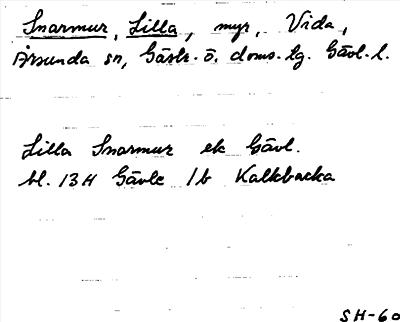 Snarmur, Lilla, myr, Vida,
Årsunda sn, Gästr. ö. doms. lg. Gävl. l.
Lilla Snarmur ek Gävl.
bl. 13H Gävle 1b Kalkbacka
SH-60